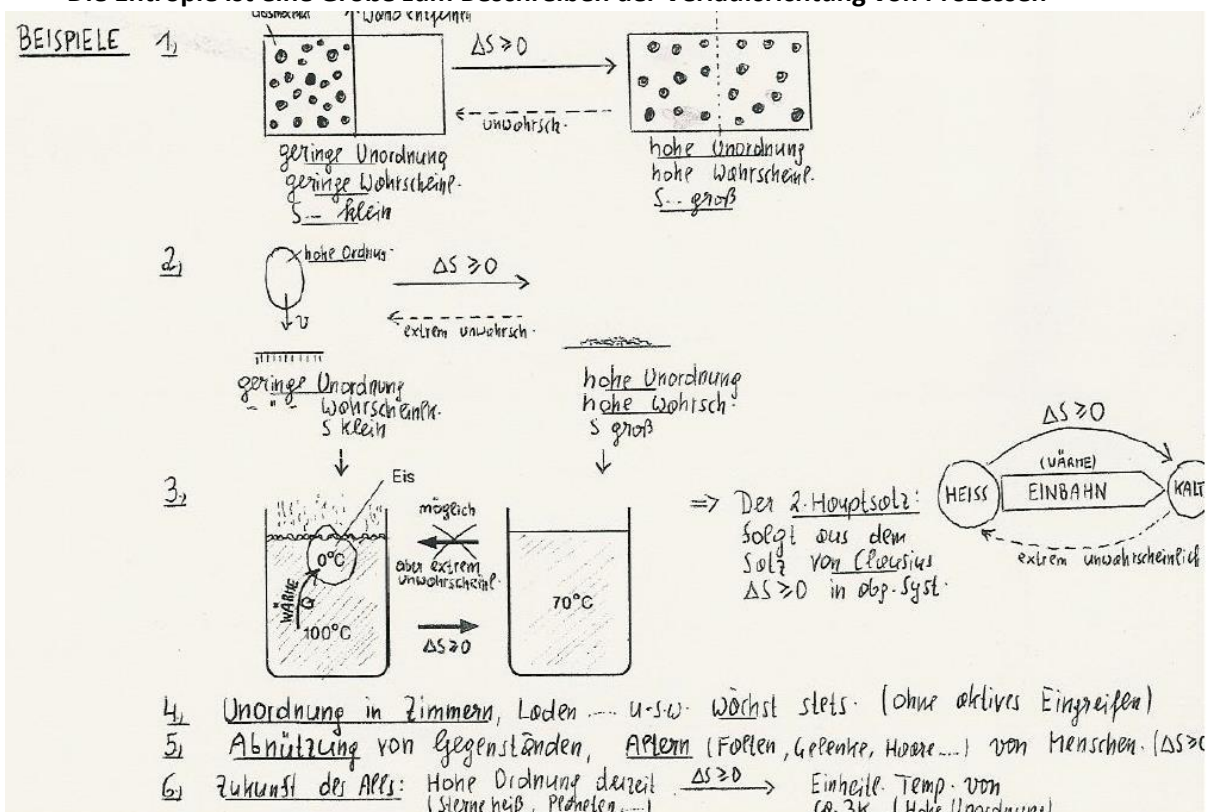 Die Entropie ist eine Größe zum Beschreiben der Verlaufsrichtung von Prozessen
BEISPIELE 1,
Wand entfernen
ΔS ≥ 0
unwahrsch.
geringe Unordnung
geringe Wahrscheinl.
S... klein
hohe Unordnung
hohe Wahrscheinl.
S... groß
2,
hohe Ordnung
ΔS ≥ 0
extrem unwahrsch.
v
geringe Unordnung
- " - Wahrscheinlk.
S klein
hohe Unordnung
hohe Wahrsch.
S groß
3,
Eis
möglich
aber extrem
unwahrscheinl.
0°C
WÄRME Q
100°C
ΔS ≥ 0
70°C
=> Der 2. Hauptsatz:
folgt aus dem
Satz von Clausius
ΔS ≥ 0 in abg. Syst.
ΔS ≥ 0
(WÄRME)
HEISS EINBAHN KALT
extrem unwahrscheinlich
4, Unordnung in Zimmern, Laden .... u.s.w. wächst stets. (ohne aktives Eingreifen)
5, Abnützung von Gegenständen, Altern (Falten, Gelenke, Haare....) von Menschen. (ΔS ≥ 0
6, Zukunft des Alls: Hohe Ordnung derzeit ΔS ≥ 0 Einheitl. Temp. von
(Sterne heiß, Planeten,....) ca. 3K (Hohe Unordnung)